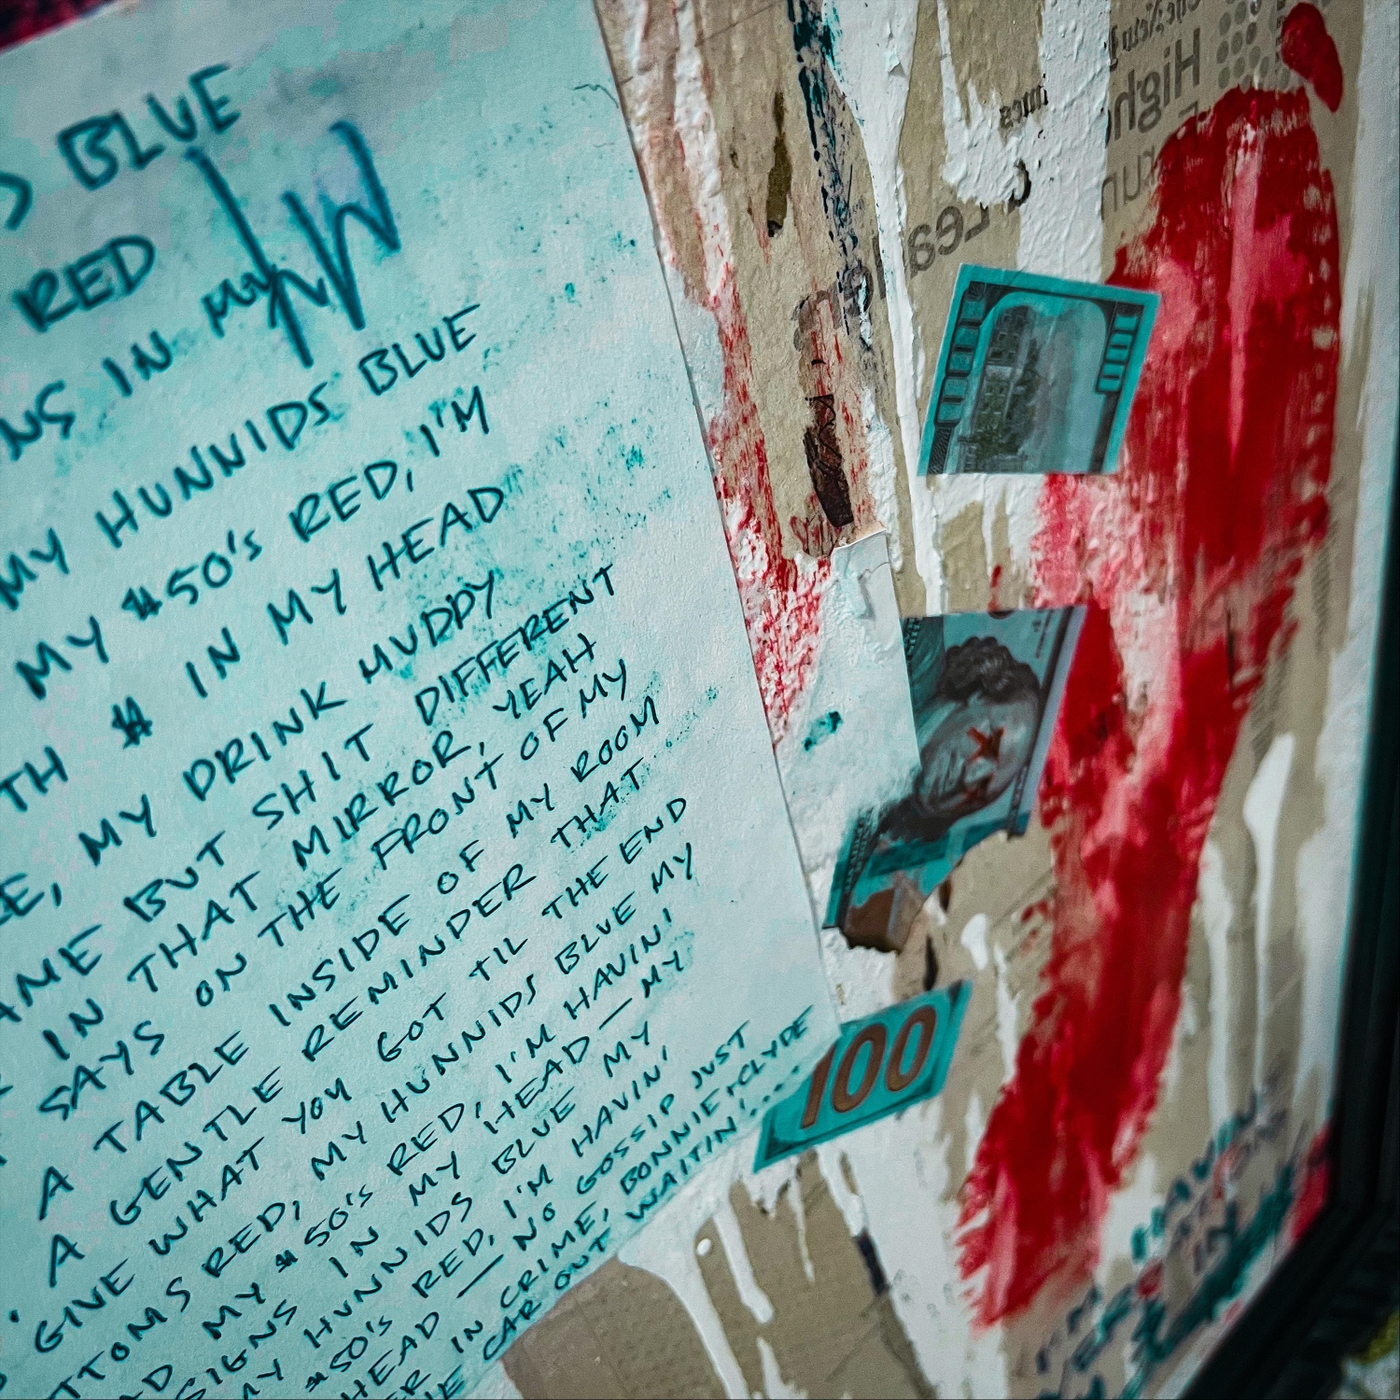 S BLUE
RED
NS IN MY
MY HUNNIDS BLUE
MY $50's RED, I'M
TH $ IN MY HEAD
E, MY DRINK MUDDY
AME BUT SHIT DIFFERENT
IN THAT MIRROR, YEAH
SAYS ON THE FRONT OF MY
A TABLE INSIDE OF MY ROOM
A GENTLE REMINDER THAT
GIVE WHAT YOU GOT TIL THE END
TTOMS RED, MY HUNNIDS BLUE MY
MY $50's RED, I'M HAVIN'
SIGNS IN MY HEAD — MY
MY HUNNIDS BLUE MY
$50's RED, I'M HAVIN'
HEAD — NO GOSSIP JUST
ER IN CRIME, BONNIE+CLYDE
E CAR OUT WAITIN'....
High
100
100
HAVIN
IN
I'M